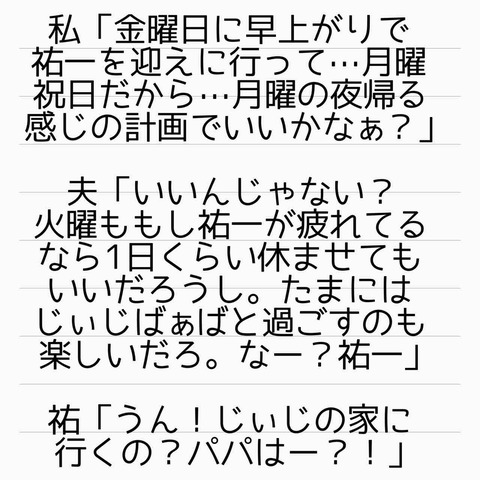 私「金曜日に早上がりで
祐一を迎えに行って…月曜
祝日だから…月曜の夜帰る
感じの計画でいいかなぁ？」
夫「いいんじゃない？
火曜ももし祐一が疲れてる
なら1日くらい休ませても
いいだろうし。たまには
じぃじばぁばと過ごすのも
楽しいだろ。なー？祐一」
祐「うん！じぃじの家に
行くの？パパはー？！」